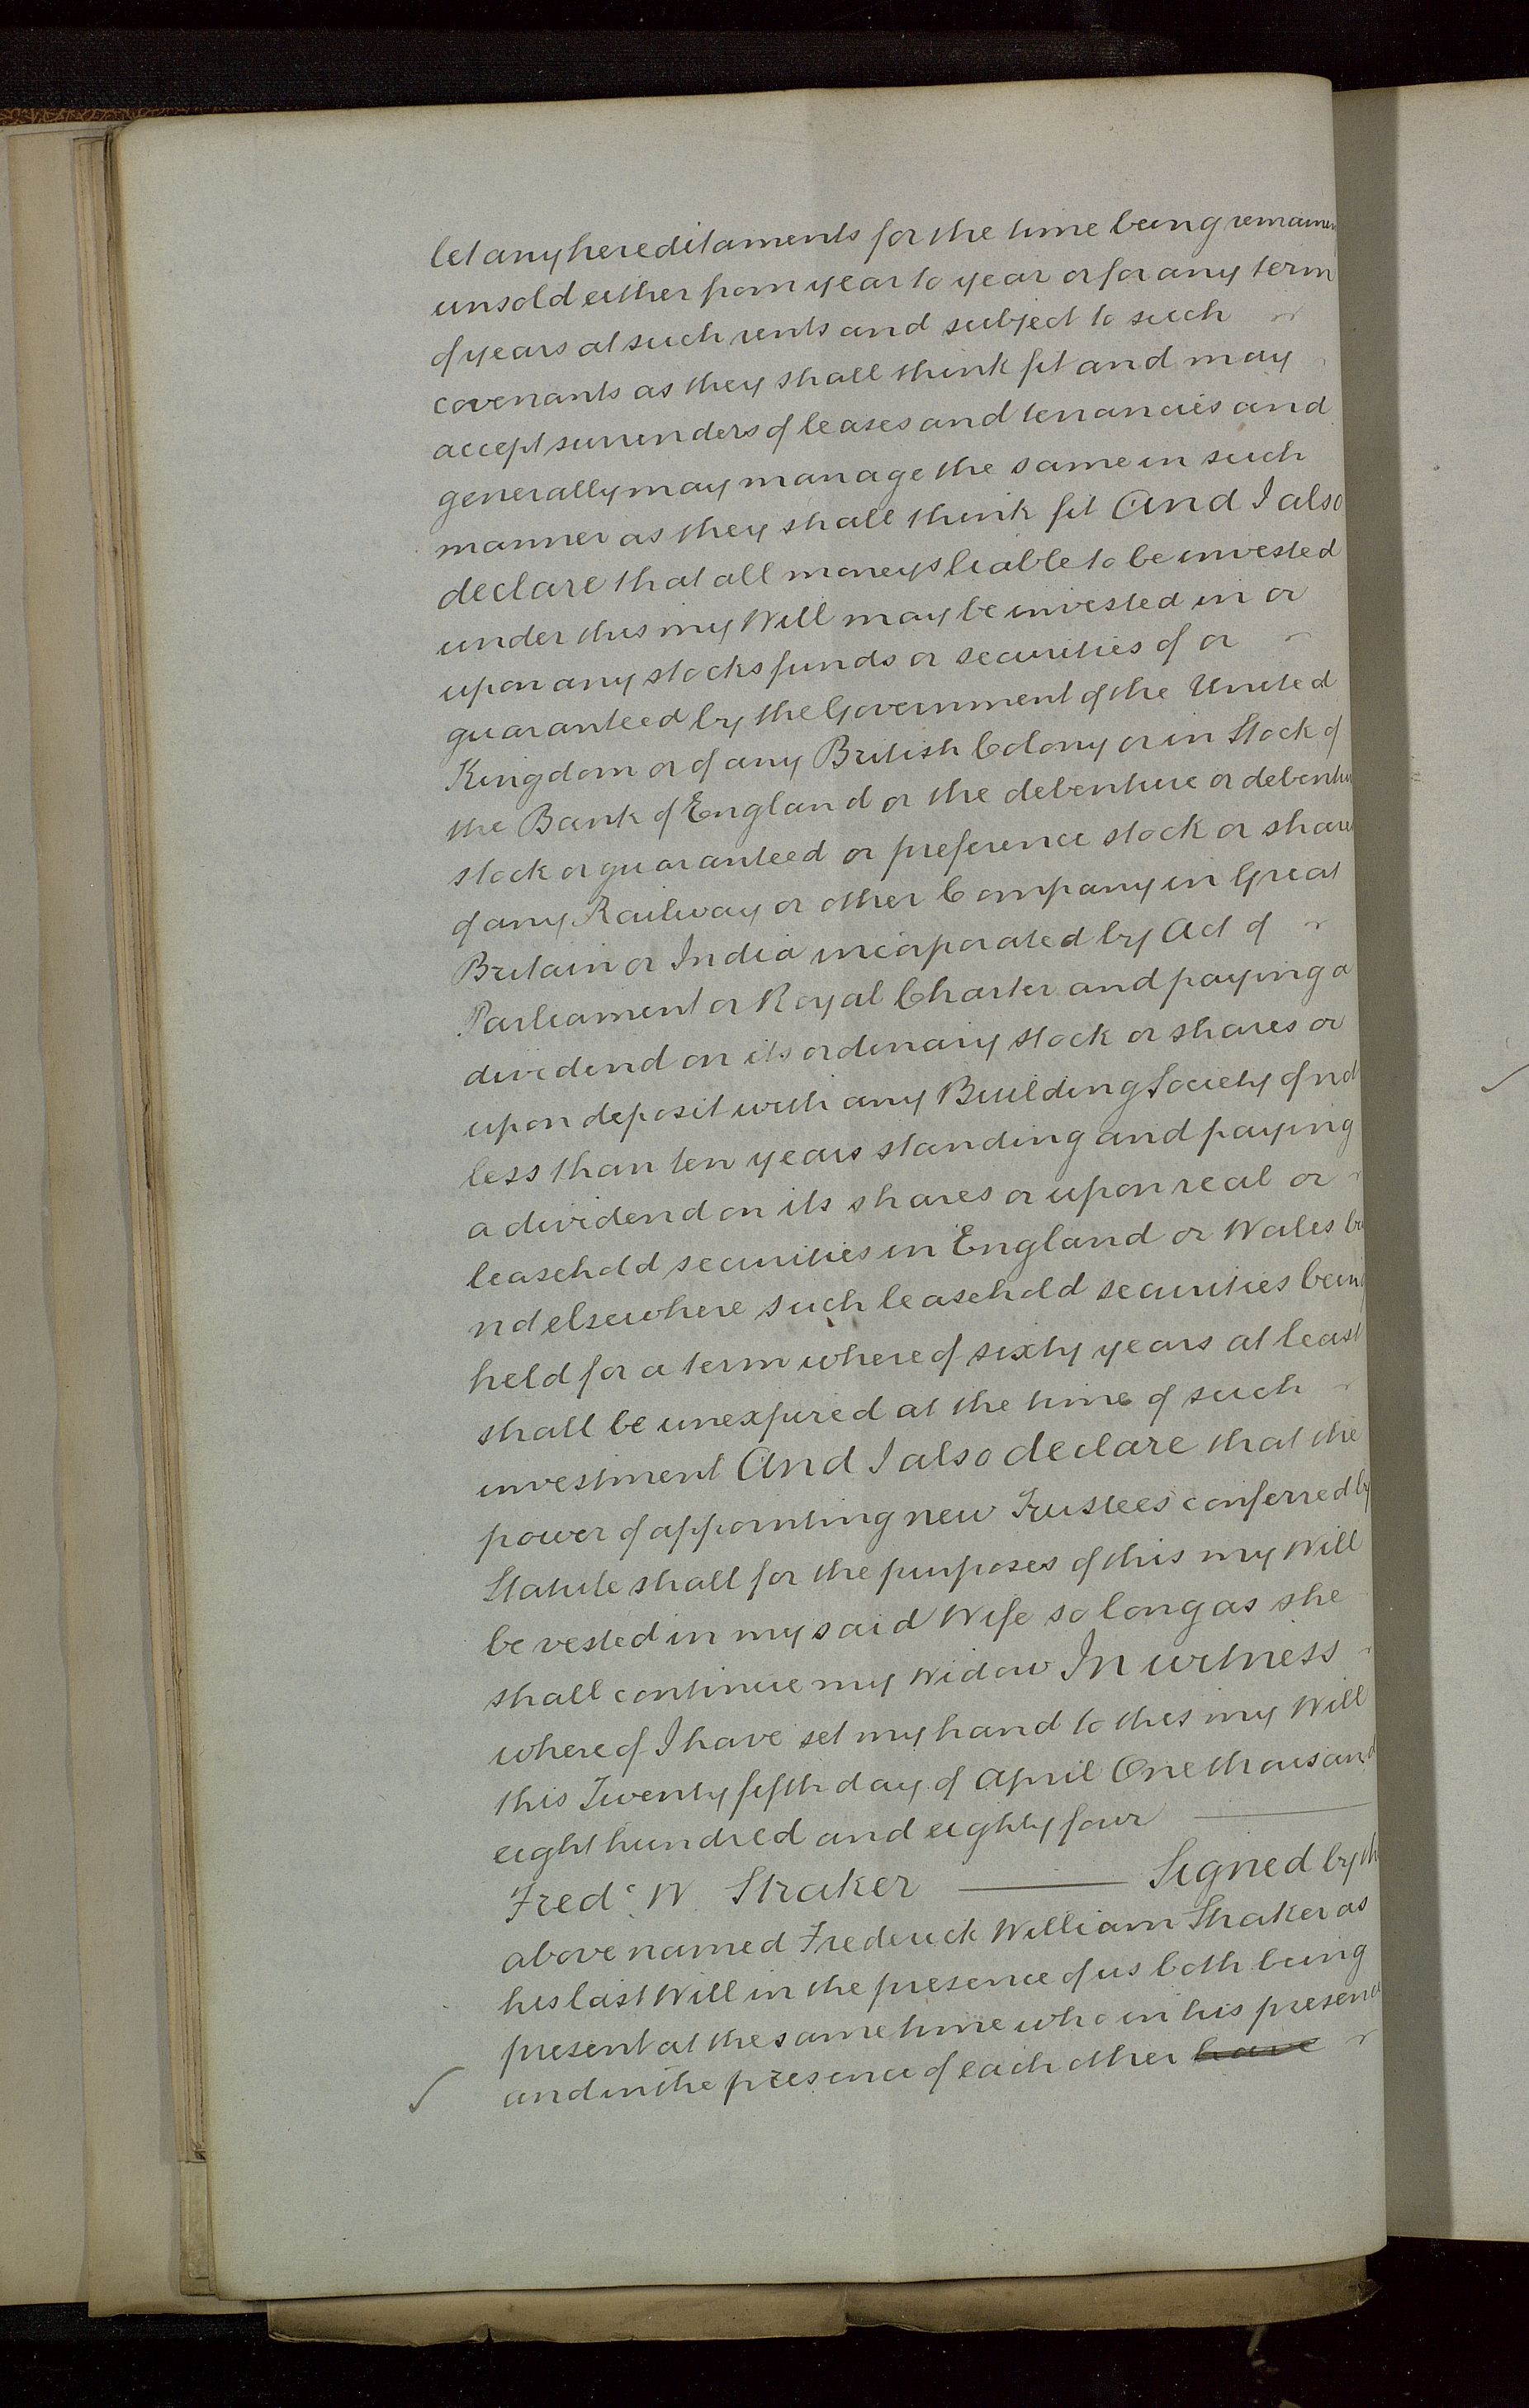 let any hereditaments for the time being remainin
unsold either from year to year or for any term
of years at such rents and subject to such
covenants as they shall think fit and may
accept surrenders of leases and tenancies and
generally may manage the same in such
manner as they shall think fit And I also
declare that all moneys liable to be invested
under this my Will may be invested in or
upon any stocks funds or securities of or
guaranteed by the Government of the United
Kingdom or of any British Colony or in Stock of
the Bank of England or the debenture or debentu
stock or guaranteed or preference stock or share
of any Railway or other Company in Great
Britain or India incorporated by Act of
Parliament or Royal Charter and paying a
dividend on its ordinary stock or shares or
upon deposit with any Building Society of not
less than ten years standing and paying
a dividend on its shares or upon real or
leasehold securities in England or Wales bu
not elsewhere such leasehold securities being
held for a term whereof sixty years at least
shall be unexpired at the time of such
investment And I also declare that the
power of appointing new Trustees conferred by
Statute shall for the purposes of this my Will
be vested in my said Wife so long as she
shall continue my Widow In witness
whereof I have set my hand to this my Will
this Twenty fifth day of April One thousand
eight hundred and eighty four
Fredc. W. Straker Signed by th
above named Frederick William Straker as
his last Will in the presence of us both being
present at the same time who in his presence
and in the presence of each other have